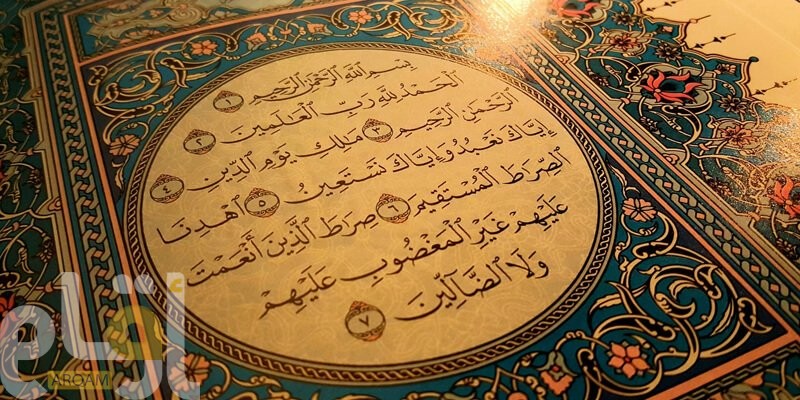 بِسْمِ ٱللَّهِ ٱلرَّحْمَٰنِ ٱلرَّحِيمِ ١
ٱلْحَمْدُ لِلَّهِ رَبِّ ٱلْعَٰلَمِينَ ٢
ٱلرَّحْمَٰنِ ٱلرَّحِيمِ ٣ مَٰلِكِ يَوْمِ ٱلدِّينِ ٤
إِيَّاكَ نَعْبُدُ وَإِيَّاكَ نَسْتَعِينُ ٥ ٱهْدِنَا
ٱلصِّرَٰطَ ٱلْمُسْتَقِيمَ ٦ صِرَٰطَ ٱلَّذِينَ أَنْعَمْتَ
عَلَيْهِمْ غَيْرِ ٱلْمَغْضُوبِ عَلَيْهِمْ
وَلَا ٱلضَّآلِّينَ ٧
أرقام
ARQAM